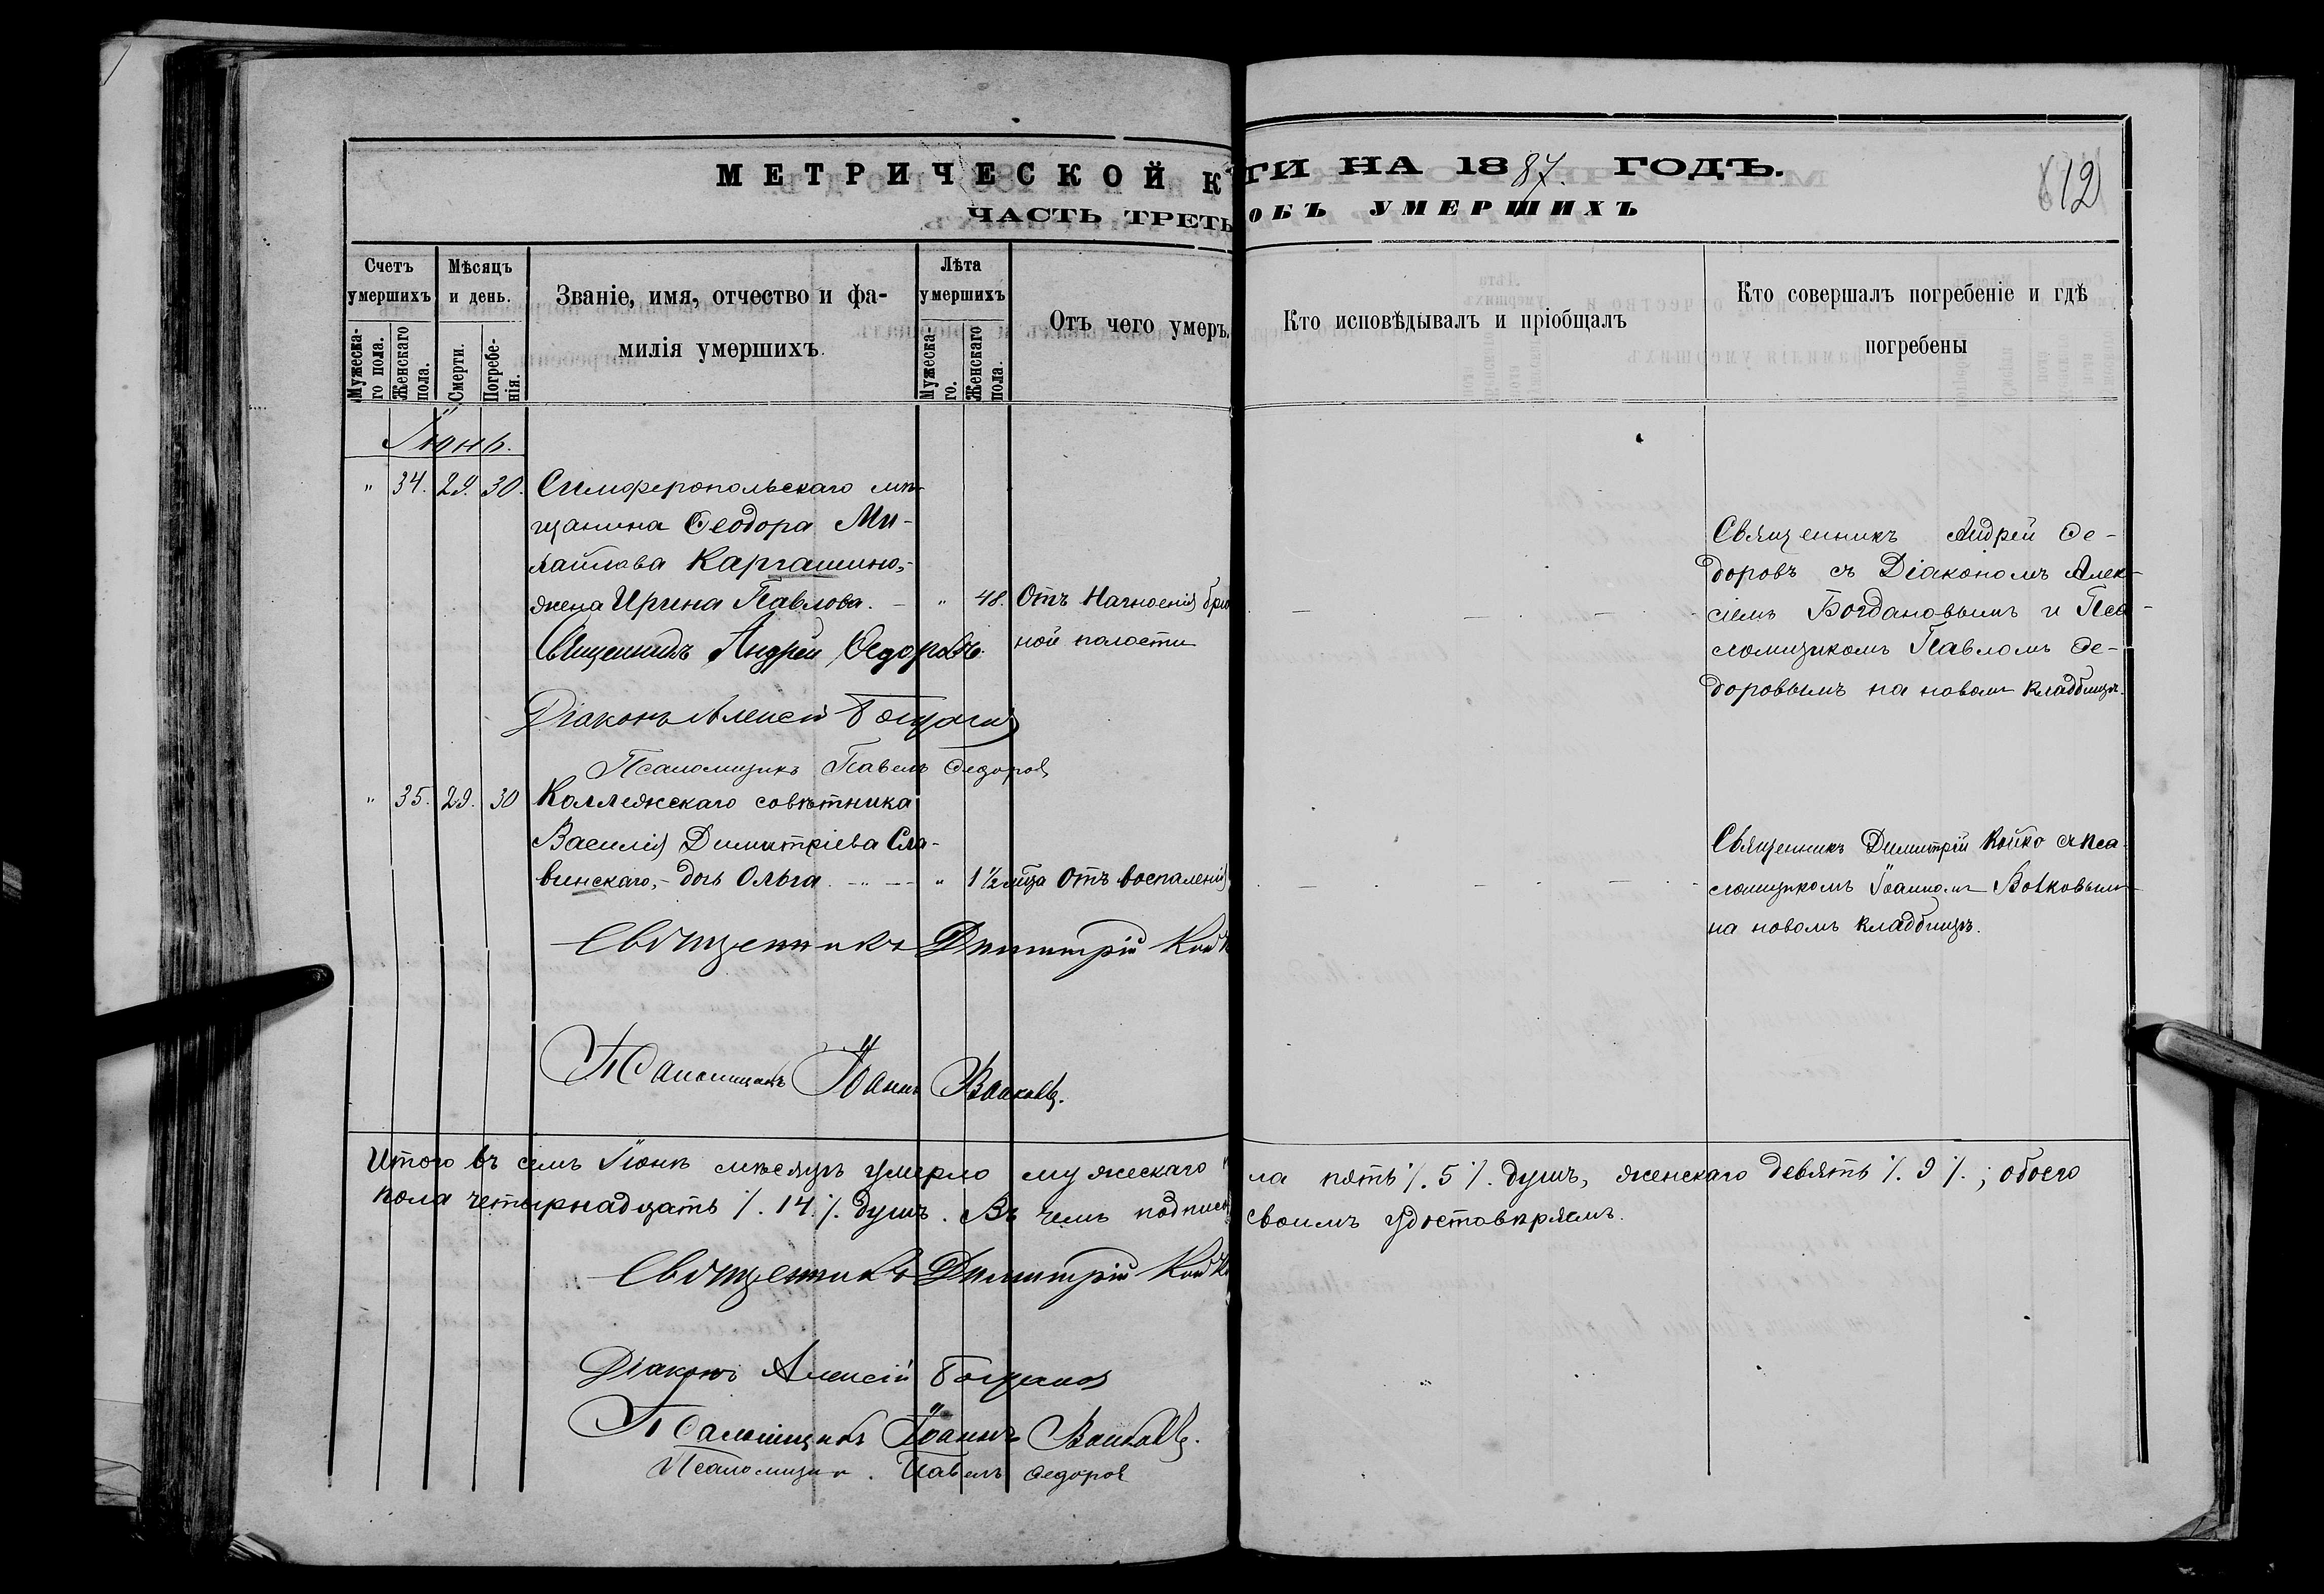 МЕТРИЧЕСКОЙ К
ГИ НА 1887. ГОДЪ.
612
ЧАСТЬ ТРЕТЬ
ОБЪ УМЕРШИХЪ
Счетъ умершихъ
Мужеска-го пола.
Женскаго пола.
Мѣсяцъ и день.
Смерти.
Погребе-нія.
Званіе, имя, отчество и фа-
милія умершихъ.
Лѣта умершихъ
Мужеска-го.
Женскаго пола.
Отъ чего умеръ.
Кто исповѣдывалъ и пріобщалъ
Кто совершалъ погребеніе и гдѣ
погребены
Іюнь.
" 34. 29. 30. Симферопольскаго мѣ-
щанина Ѳеодора Ми-
хайлова Каргашино,-
жена Ирина Павлова. - " 48. Отъ нагноенія брю
ной полости
Священникъ Андрей Ѳедоровъ.
Діаконъ Алексей Богданов
Псаломщикъ Павелъ Федоров
Священникъ Андрей Фе-
доровъ съ Діакономъ Алек-
сіемъ Богдановымъ и Пса-
ломщикомъ Павломъ Фе-
доровымъ на новомъ кладбищѣ.
" 35. 29. 30 Коллежскаго совѣтника
Василія Димитріева Сла-
винскаго,- дочь Ольга. - " 1 1/2 мѣца Отъ воспаленія
Священникъ Димитрій Кой
Псаломщикъ Іоаннъ Волковъ.
Священникъ Димитрій Койко съ пса-
ломщикомъ Іоанномъ Волковымъ
на новомъ кладбищѣ.
Итого въ семъ Іюнѣ мѣсяцѣ умерло мужескаго
ла пять /. 5 /. душъ, женскаго девять /. 9 /.; обоего
пола четырнадцать /. 14 /. душъ. Въ чемъ подпис
своимъ удостовѣряемъ.
Священникъ Димитрій Кой
Діаконъ Алексій Богданов
Псаломщикъ Іоаннъ Волковъ.
Псаломщик. Павелъ Федоров